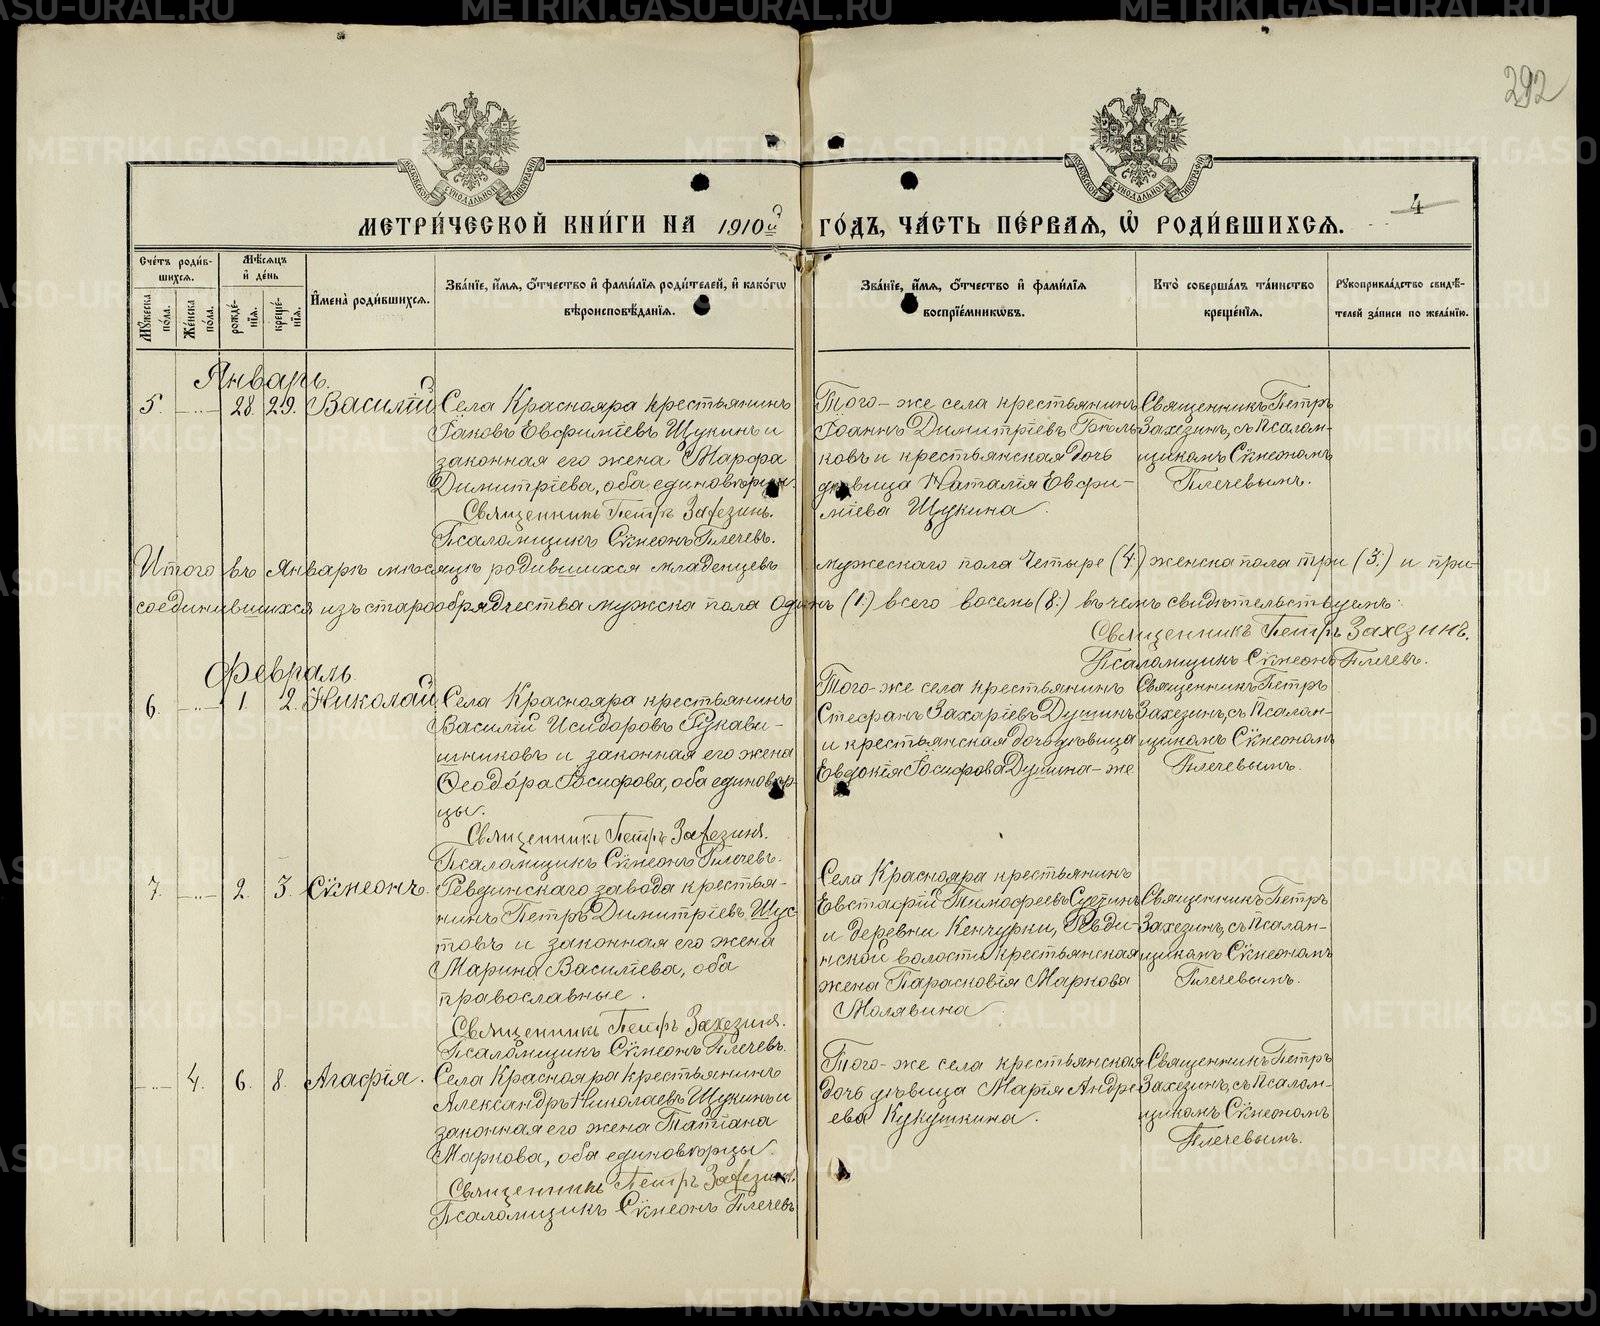 292
4
МЕТРИ́ЧЕСКОЙ КНИ́ГИ НА 1910й ГО́ДЪ, ЧА́СТЬ ПЕ́РВАЯ, Ѿ РОДИ́ВШИХСЯ.
Сче́тъ роди́в-
шихся.
Мꙋ́жеска
по́ла.
Же́нска
по́ла.
Мѣ́сяцъ
и де́нь
рожде́-
нїя.
креще́-
нїя.
Имена̀ роди́вшихся.
Зва́нїе, и́мя, о́тчество и фами́лїя роди́телей, и како́гѡ
вѣроисповѣ́данїя.
Зва́нїе, и́мя, о́тчество и фами́лїя
воспрїе́мникѡвъ.
Кто̀ соверша́лъ та́инство
креще́нїя.
Рꙋкоприкла́дство свидѣ́-
телей за́писи по жела́нїю.
Январь.
5. 28. 29. Василій
Села Краснояра крестьянинъ
Іаковъ Евфиміевъ Щукинъ и
законная его жена Марѳа
Димитріева, оба единовѣрц
Священникъ Петръ Захезинъ.
Псаломщикъ Сѵмеонъ Плечевъ.
Того-же села крестьянинъ
Іоаннъ Димитріевъ
ковъ и крестьянская дочь
дѣвица Наталія Евфи-
міева Щукина.
Священникъ Петръ
Захезинъ, съ Псалом-
щикомъ Сѵмеономъ
Плечевымъ.
Итого въ Январѣ мѣсяцѣ родившихся младенцевъ мужескаго пола четыре (4.) женска пола три (3.) и при-
соединившихся изъ старообрядчества мужска пола одинъ (1.) всего восемь (8.) въ чемъ свидѣтельствуемъ:
Священникъ Петръ Захезинъ.
Псаломщикъ Сѵмеонъ Плечевъ.
Февраль
6. 1. 2. Николай
Села Краснояра крестьянинъ
Василій Исидоровъ Рукави-
шниковъ и законная его жена
Ѳеодора Іосифова, оба единовѣр-
цы.
Священникъ Петръ Захезинъ.
Псаломщикъ Сѵмеонъ Плечевъ.
Того-же села крестьянинъ
Стефанъ Захаріевъ Душинъ
и крестьянская дочь дѣвица
Евдокія Іосифова Душина-же
Священникъ Петръ
Захезинъ, съ Псалом-
щикомъ Сѵмеономъ
Плечевымъ.
7. 2. 3. Сѵмеонъ.
Ревдинскаго завода крестья-
нинъ Петръ Димитріевъ Шус-
товъ и законная его жена
Марина Василіева, оба
православные.
Священникъ Петръ Захезинъ.
Псаломщикъ Сѵмеонъ Плечевъ.
Села Краснояра крестьянинъ
Евстафій Тимофеевъ
и деревни Кенчурки, Ревди-
нской волости крестьянская
жена Парасковія Маркова
Малявина
Священникъ Петръ
Захезинъ, съ Псалом-
щикомъ Сѵмеономъ
Плечевымъ.
4. 6. 8. Агафія.
Села Краснояра крестьянинъ
Александръ Николаевъ Щукинъ и
законная его жена Татіана
Маркова, оба единовѣрцы.
Священникъ Петръ Захезинъ.
Псаломщикъ Сѵмеонъ Плечевъ
Того-же села крестьянская
дочь дѣвица Марія Андре-
ева Кукушкина.
Священникъ Петръ
Захезинъ, съ Псалом-
щикомъ Сѵмеономъ
Плечевымъ.
METRIKI.GASO-URAL.RU